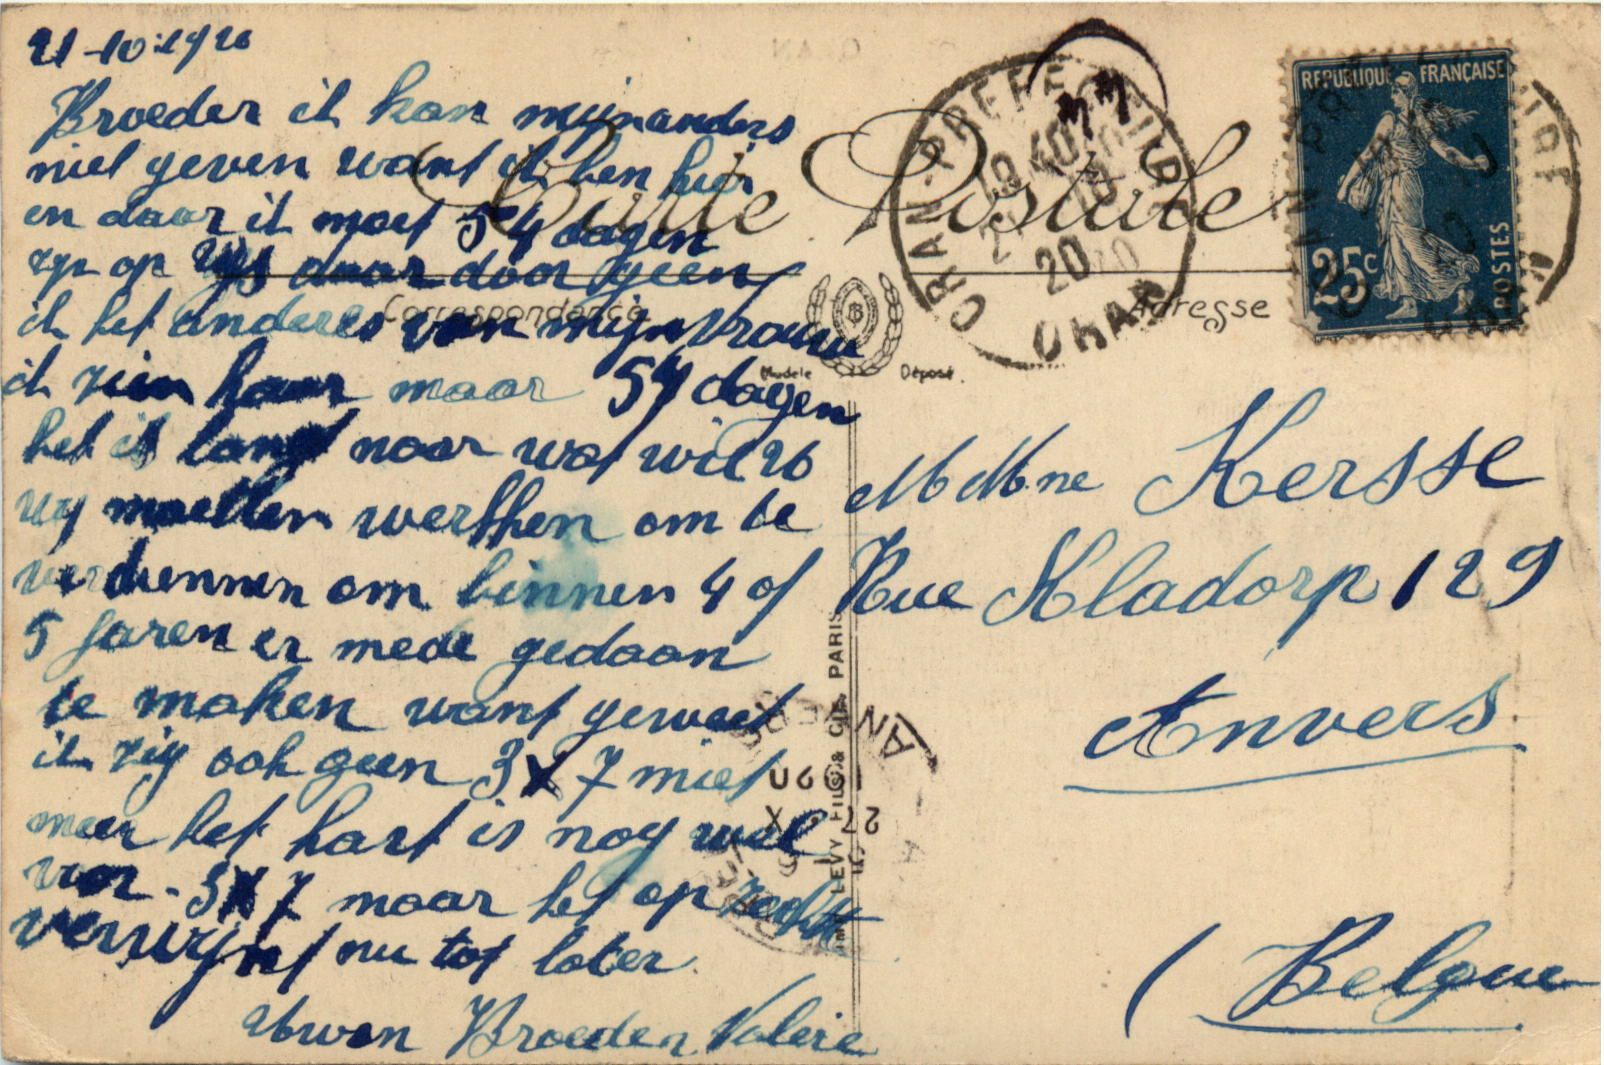 21-10-1920
Broeder ik kan mijn anders
niet geven want ik ben hier
en daar ik moet 54 dagen
zyn op reys daar door geen
ik het anderes van mijn vrouw
ik zien haar maar 54 dagen
het is lang naar wat wil u
wy moetten werkhen om te
verdiennen om binnen 4 of
5 Jaren er mede gedaan
te maken want geweet
ik zig ook geen 3 x 7 niet
meer het hart is nog wel
van 3 x 7 maar het op
verwijnt nu tot later
Uwen Broeder Valerie
Carte Postale
Correspondance
Adresse
Modèle Déposé.
REPUBLIQUE FRANÇAISE
25c
POSTES
ORAN-PREFECTURE
19 40
20
ORAN
M Mme Kersse
Rue Kladorp 129
Anvers
(Belgue
IMP. LEVY FILS & CIE, PARIS